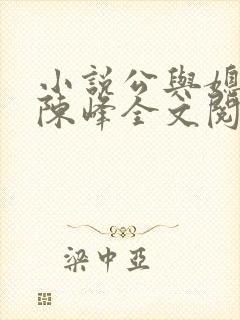 小說公與媳
陳峰全文閱
梁中亞